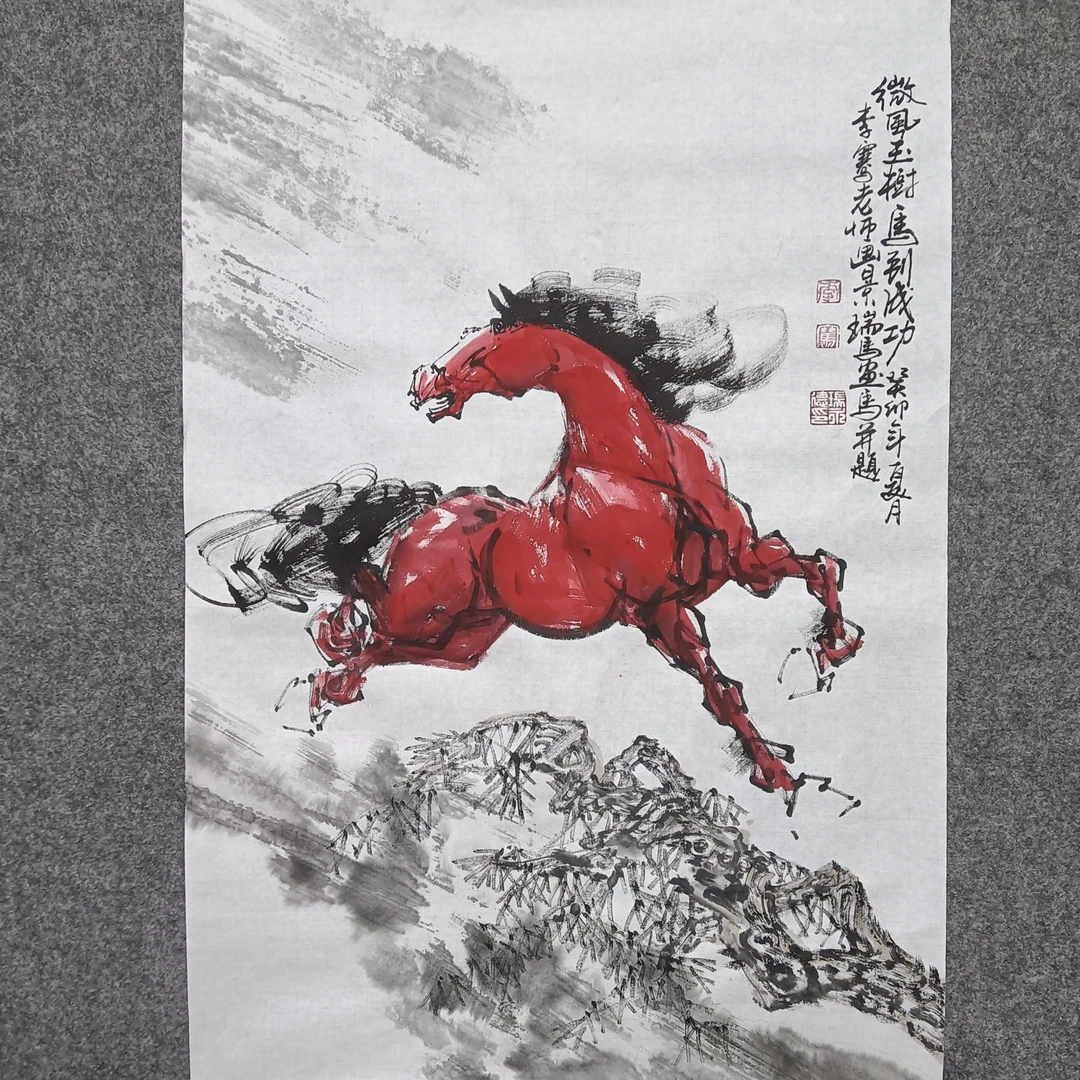 微风玉樹馬到成功癸卯年夏月
李騫老师画景瑞馬画馬并題